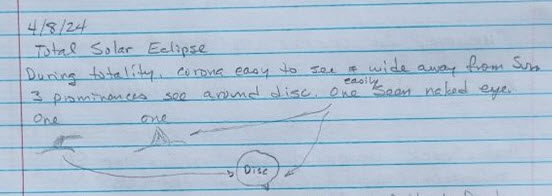 4/8/24
Total Solar Eclipse
During totality, corona easy to see + wide away from Sun
3 prominences see around disc. One easily seen naked eye.
One one
Disc